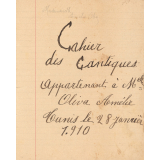 Cahier
des Cantiques
Appartenant à Mlle
Oliva Amélie
Tunis le 28 janvier
1910